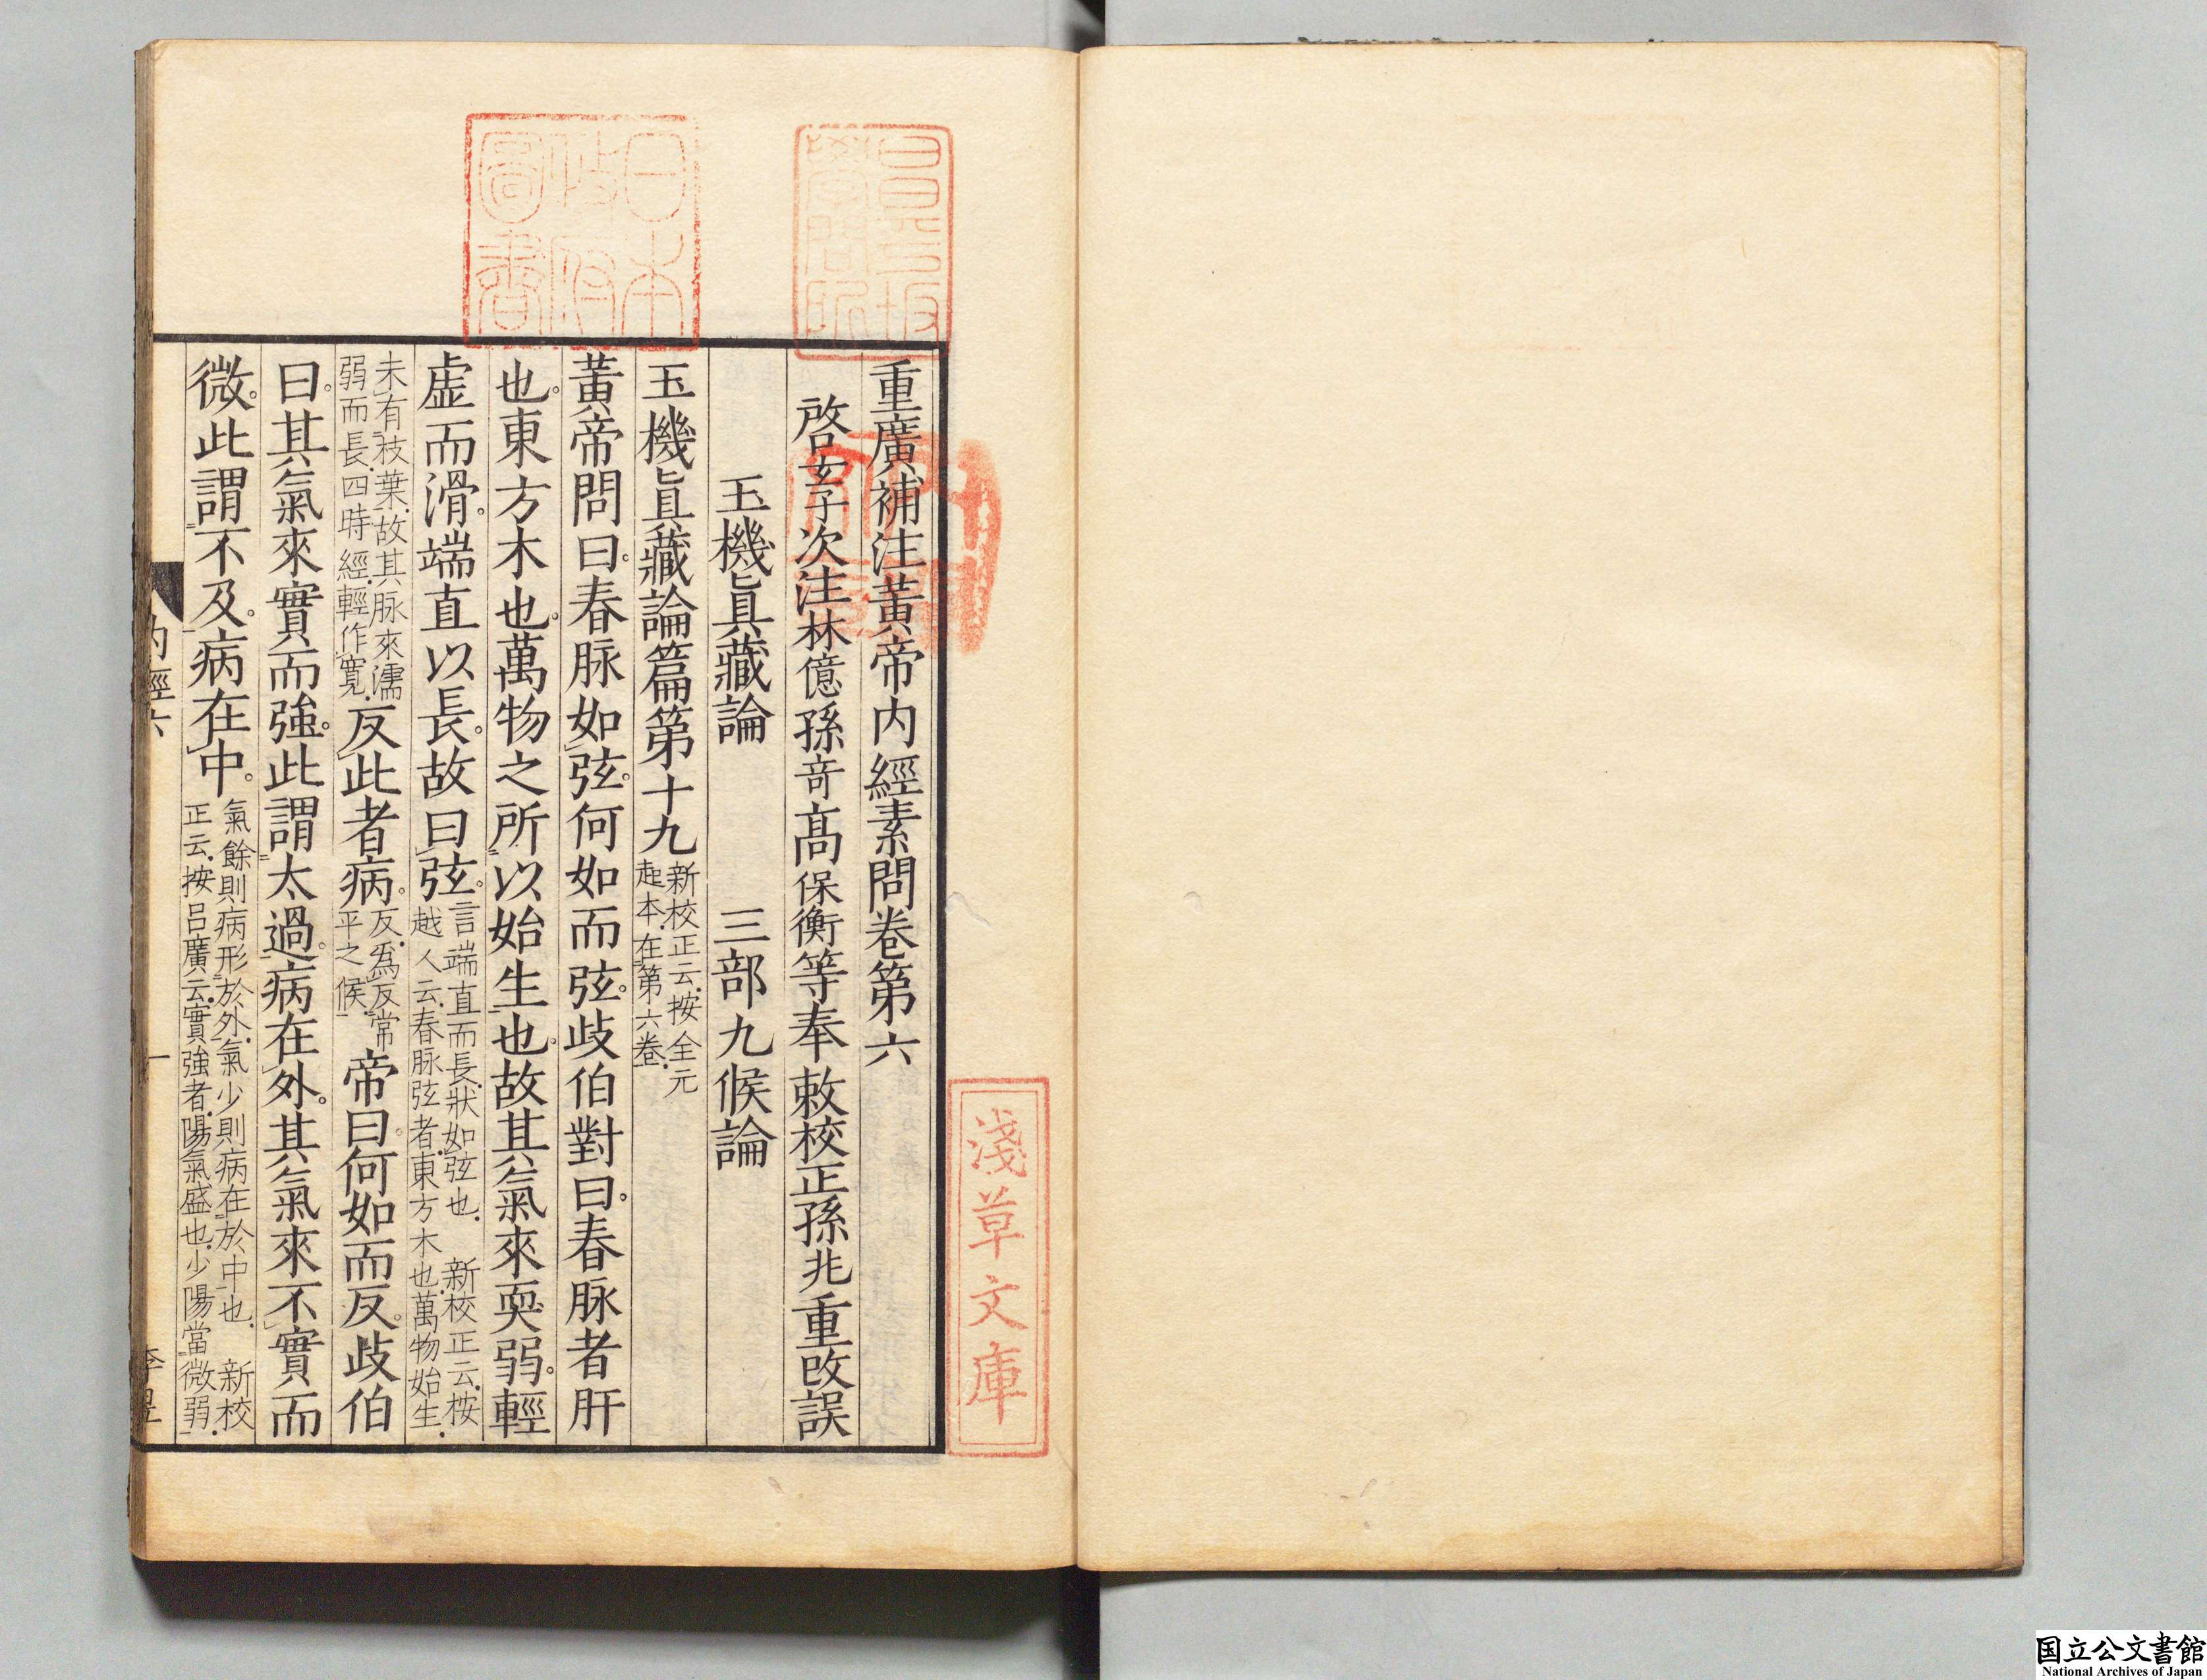 重廣補注黃帝内經素問卷第六
啓玄子次注林億孫奇高保衡等奉敕校正孫兆重改誤
玉機眞藏論　三部九候論
玉機眞藏論篇第十九
新校正云按全元
起本在第六卷
黃帝問曰春脉如弦何如而弦歧伯對曰春脉者肝
也東方木也萬物之所以始生也故其氣來耎弱輕
虚而滑端直以長故曰弦
言端直而長狀如弦也　新校正云按
越人云春脉弦者東方木也萬物始生
未有枝葉故其脉來濡
弱而長四時經輕作寬
反此者病
反爲反常
平之候
帝曰何如而反歧伯
曰其氣來實而強此謂太過病在外其氣來不實而
微此謂不及病在中
氣餘則病形於外氣少則病在於中也　新校
正云按吕廣云實強者陽氣盛也少陽當微弱
内經六
一
李昱
日本
政府
圖書
昌平坂
學問所
淺草文庫
国立公文書館
National Archives of Japan